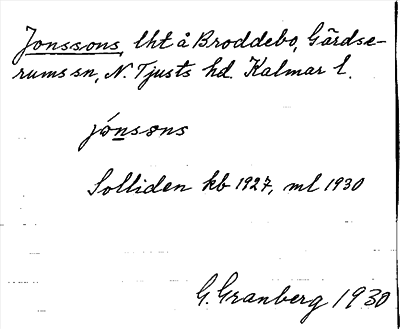 Jonssons, lht å Broddebo, Gärdse-
rums sn, N. Tjusts hd. Kalmar l.
jónsons
Solliden kb 1927, ml 1930
G. Granberg 1930